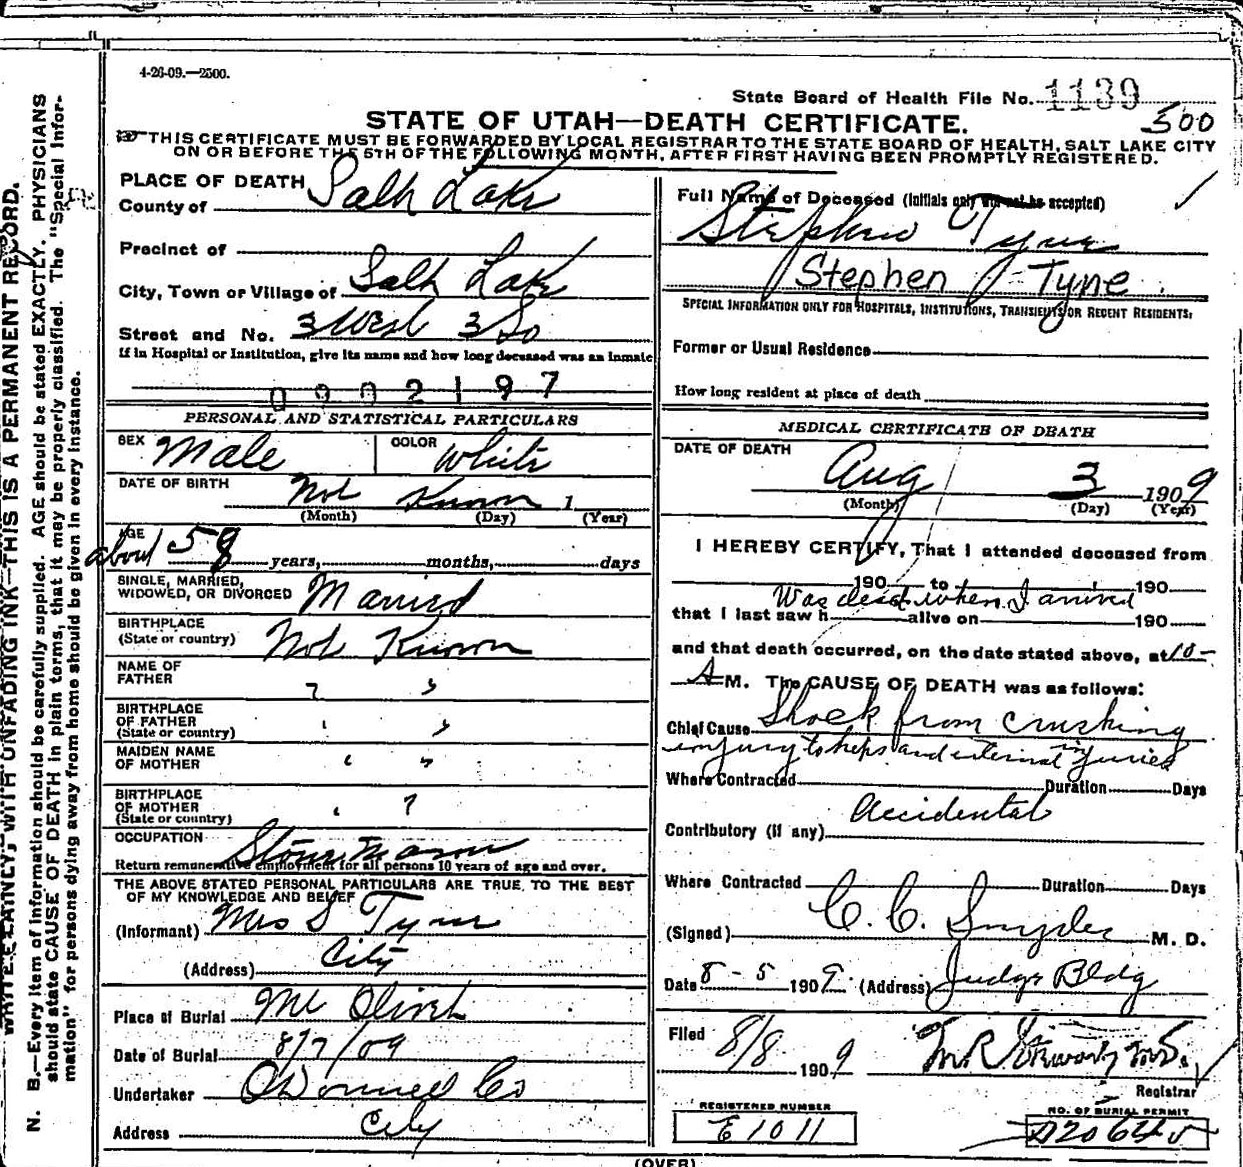 4-26-09.—2500.
State Board of Health File No. 1139
STATE OF UTAH—DEATH CERTIFICATE.
500
THIS CERTIFICATE MUST BE FORWARDED BY LOCAL REGISTRAR TO THE STATE BOARD OF HEALTH, SALT LAKE CITY
ON OR BEFORE THE 5TH OF THE FOLLOWING MONTH, AFTER FIRST HAVING BEEN PROMPTLY REGISTERED.
PLACE OF DEATH
County of Salt Lake
Precinct of
City, Town or Village of Salt Lake
Street and No. 3 West 3 So
If in Hospital or Institution, give its name and how long deceased was an inmate
0002197
PERSONAL AND STATISTICAL PARTICULARS
SEX Male COLOR White
DATE OF BIRTH Not Known 1
(Month) (Day) (Year)
AGE
about 58 years, months, days
SINGLE, MARRIED,
WIDOWED, OR DIVORCED Married
BIRTHPLACE
(State or country) Not Known
NAME OF
FATHER " "
BIRTHPLACE
OF FATHER
(State or country) " "
MAIDEN NAME
OF MOTHER " "
BIRTHPLACE
OF MOTHER
(State or country) " "
OCCUPATION Stone Mason
Return remunerative employment for all persons 10 years of age and over.
THE ABOVE STATED PERSONAL PARTICULARS ARE TRUE TO THE BEST
OF MY KNOWLEDGE AND BELIEF
(Informant) Mrs S Tyne
(Address) City
Place of Burial Mt Olivet
Date of Burial 8/7/09
Undertaker O'Donnell Co
Address City
Full Name of Deceased (Initials only not be accepted)
Stephen Tyne
Stephen Tyne
SPECIAL INFORMATION ONLY FOR HOSPITALS, INSTITUTIONS, TRANSIENTS OR RECENT RESIDENTS:
Former or Usual Residence
How long resident at place of death
MEDICAL CERTIFICATE OF DEATH
DATE OF DEATH
Aug 3 1909
(Month) (Day) (Year)
I HEREBY CERTIFY, That I attended deceased from
190 to 190
Was dead when I arrived
that I last saw h alive on 190
and that death occurred, on the date stated above, at 10-
A M. The CAUSE OF DEATH was as follows:
Chief Cause Shock from crushing
injury to hips and internal injuries
Where Contracted Duration Days
Accidental
Contributory (if any)
Where Contracted Duration Days
(Signed) C. C. Snyder M. D.
Date 8-5 1909. (Address) Judge Bldg
Filed 8/8 1909
Registrar
REGISTERED NUMBER
E1011
NO. OF BURIAL PERMIT
(OVER)
WRITE PLAINLY, WITH UNFADING INK—THIS IS A PERMANENT RECORD.
N. B.—Every item of information should be carefully supplied. AGE should be stated EXACTLY. PHYSICIANS
should state CAUSE OF DEATH in plain terms, that it may be properly classified. The "Special Infor-
mation" for persons dying away from home should be given in every instance.